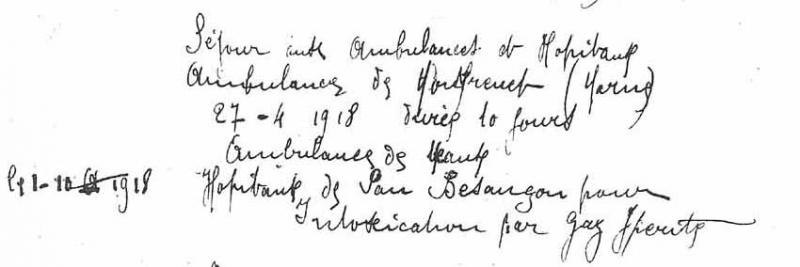 Séjour aux Ambulances et Hopitaux
Ambulance de (Marne)
27-4 1918 durée 10 jours
Ambulance de
le 1-10 1918 Hopitaux de Pau Besançon pour
Intoxication par Gaz Iperite